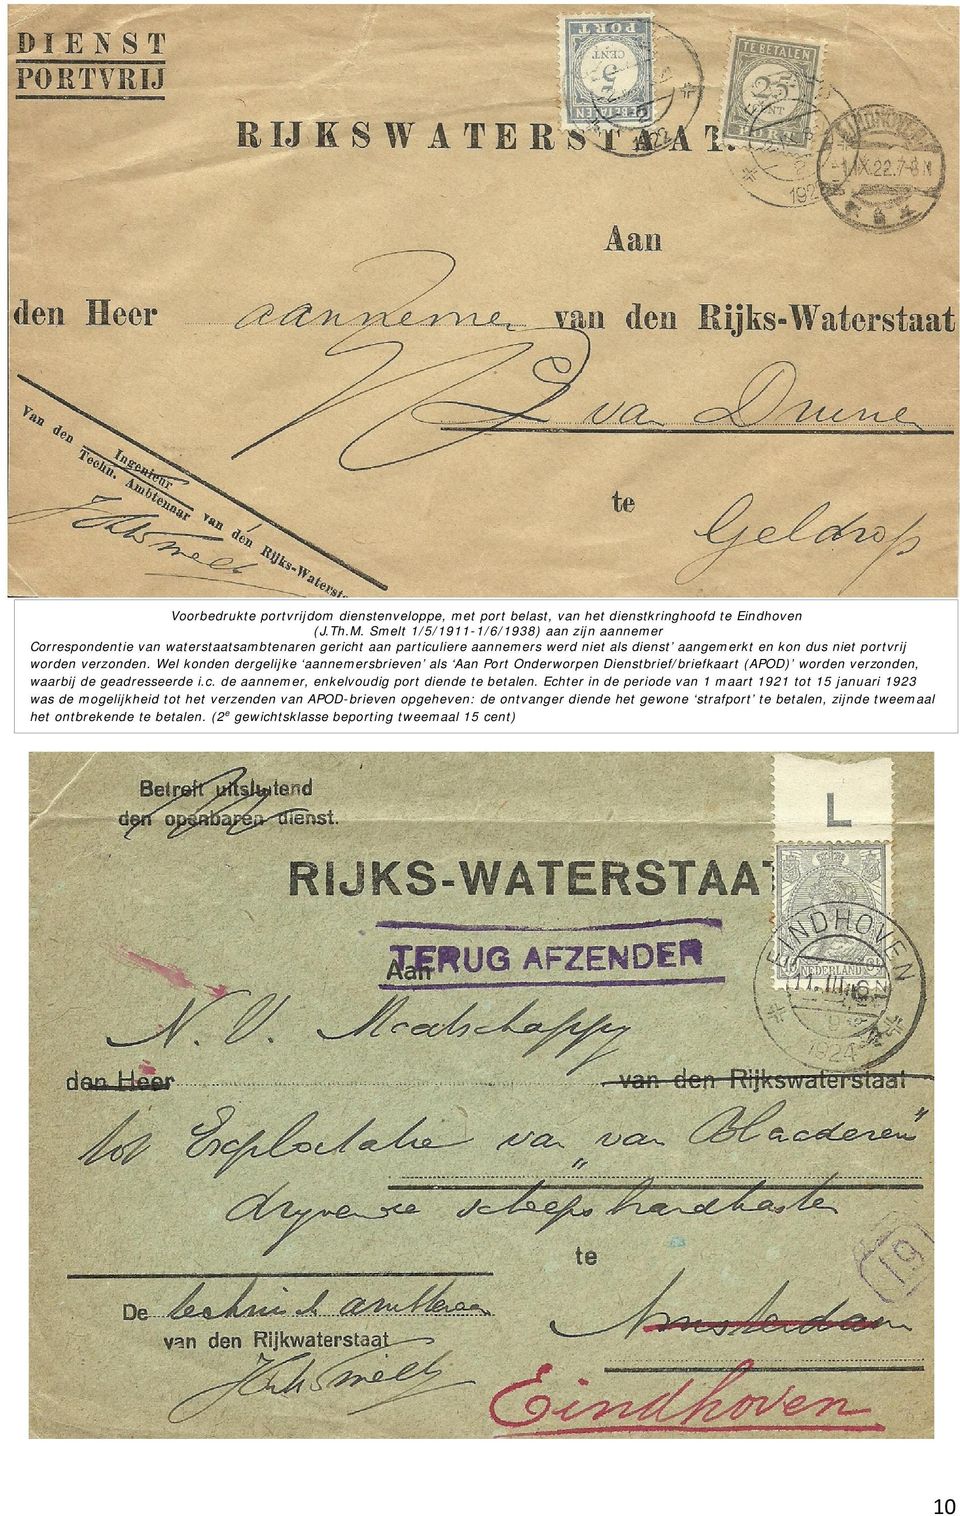 DIENST
PORTVRIJ
PORT
5
CENT
TE BETALEN
TE BETALEN
25
CENT
PORT
1922
192
-1.IX.22.7-8N
RIJKSWATERSTAAT.
Aan
den Heer aannemer van den Rijks-Waterstaat
van Drunen
te
Geldrop
Van den Ingenieur
Techn. Ambtenaar van den Rijks-Waterst
Voorbedrukte portvrijdom dienstenveloppe, met port belast, van het dienstkringhoofd te Eindhoven
(J.Th.M. Smelt 1/5/1911-1/6/1938) aan zijn aannemer
Correspondentie van waterstaatsambtenaren gericht aan particuliere aannemers werd niet als dienst’ aangemerkt en kon dus niet portvrij
worden verzonden. Wel konden dergelijke ‘aannemersbrieven’ als ‘Aan Port Onderworpen Dienstbrief/briefkaart (APOD)’ worden verzonden,
waarbij de geadresseerde i.c. de aannemer, enkelvoudig port diende te betalen. Echter in de periode van 1 maart 1921 tot 15 januari 1923
was de mogelijkheid tot het verzenden van APOD-brieven opgeheven: de ontvanger diende het gewone ‘strafport’ te betalen, zijnde tweemaal
het ontbrekende te betalen. (2e gewichtsklasse beporting tweemaal 15 cent)
Betreft uitsluitend
den openbaren dienst.
L
RIJKS-WATERSTAAT
NEDERLAND
EINDHOVEN
11.III
1924
TERUG AFZENDER
Aan
N.V. Maatschappy
den Heer van den Rijkswaterstaat
tot Exploitatie van "van Blaaderen"
dryvende scheepshardhasten
te
61
De technisch ambtenaar
van den Rijkwaterstaat
Amsterdam
Eindhoven
10